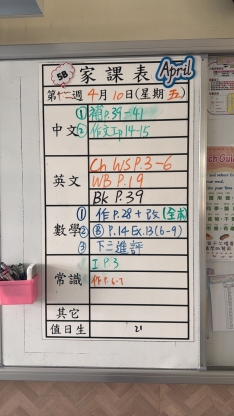 5B 家課表 April
第十二週 4月10日(星期五)
中文
① 補P.39-41
② 作文工p14-15
英文
Ch WS P.3-6
WB P.19
Bk P.39
數學
① 作P.28+改(全本)
② Ⓑ P.14 Ex.13(6-9)
③ 下三進評
常識
工P.3
作P.6-7
其它
值日生 21